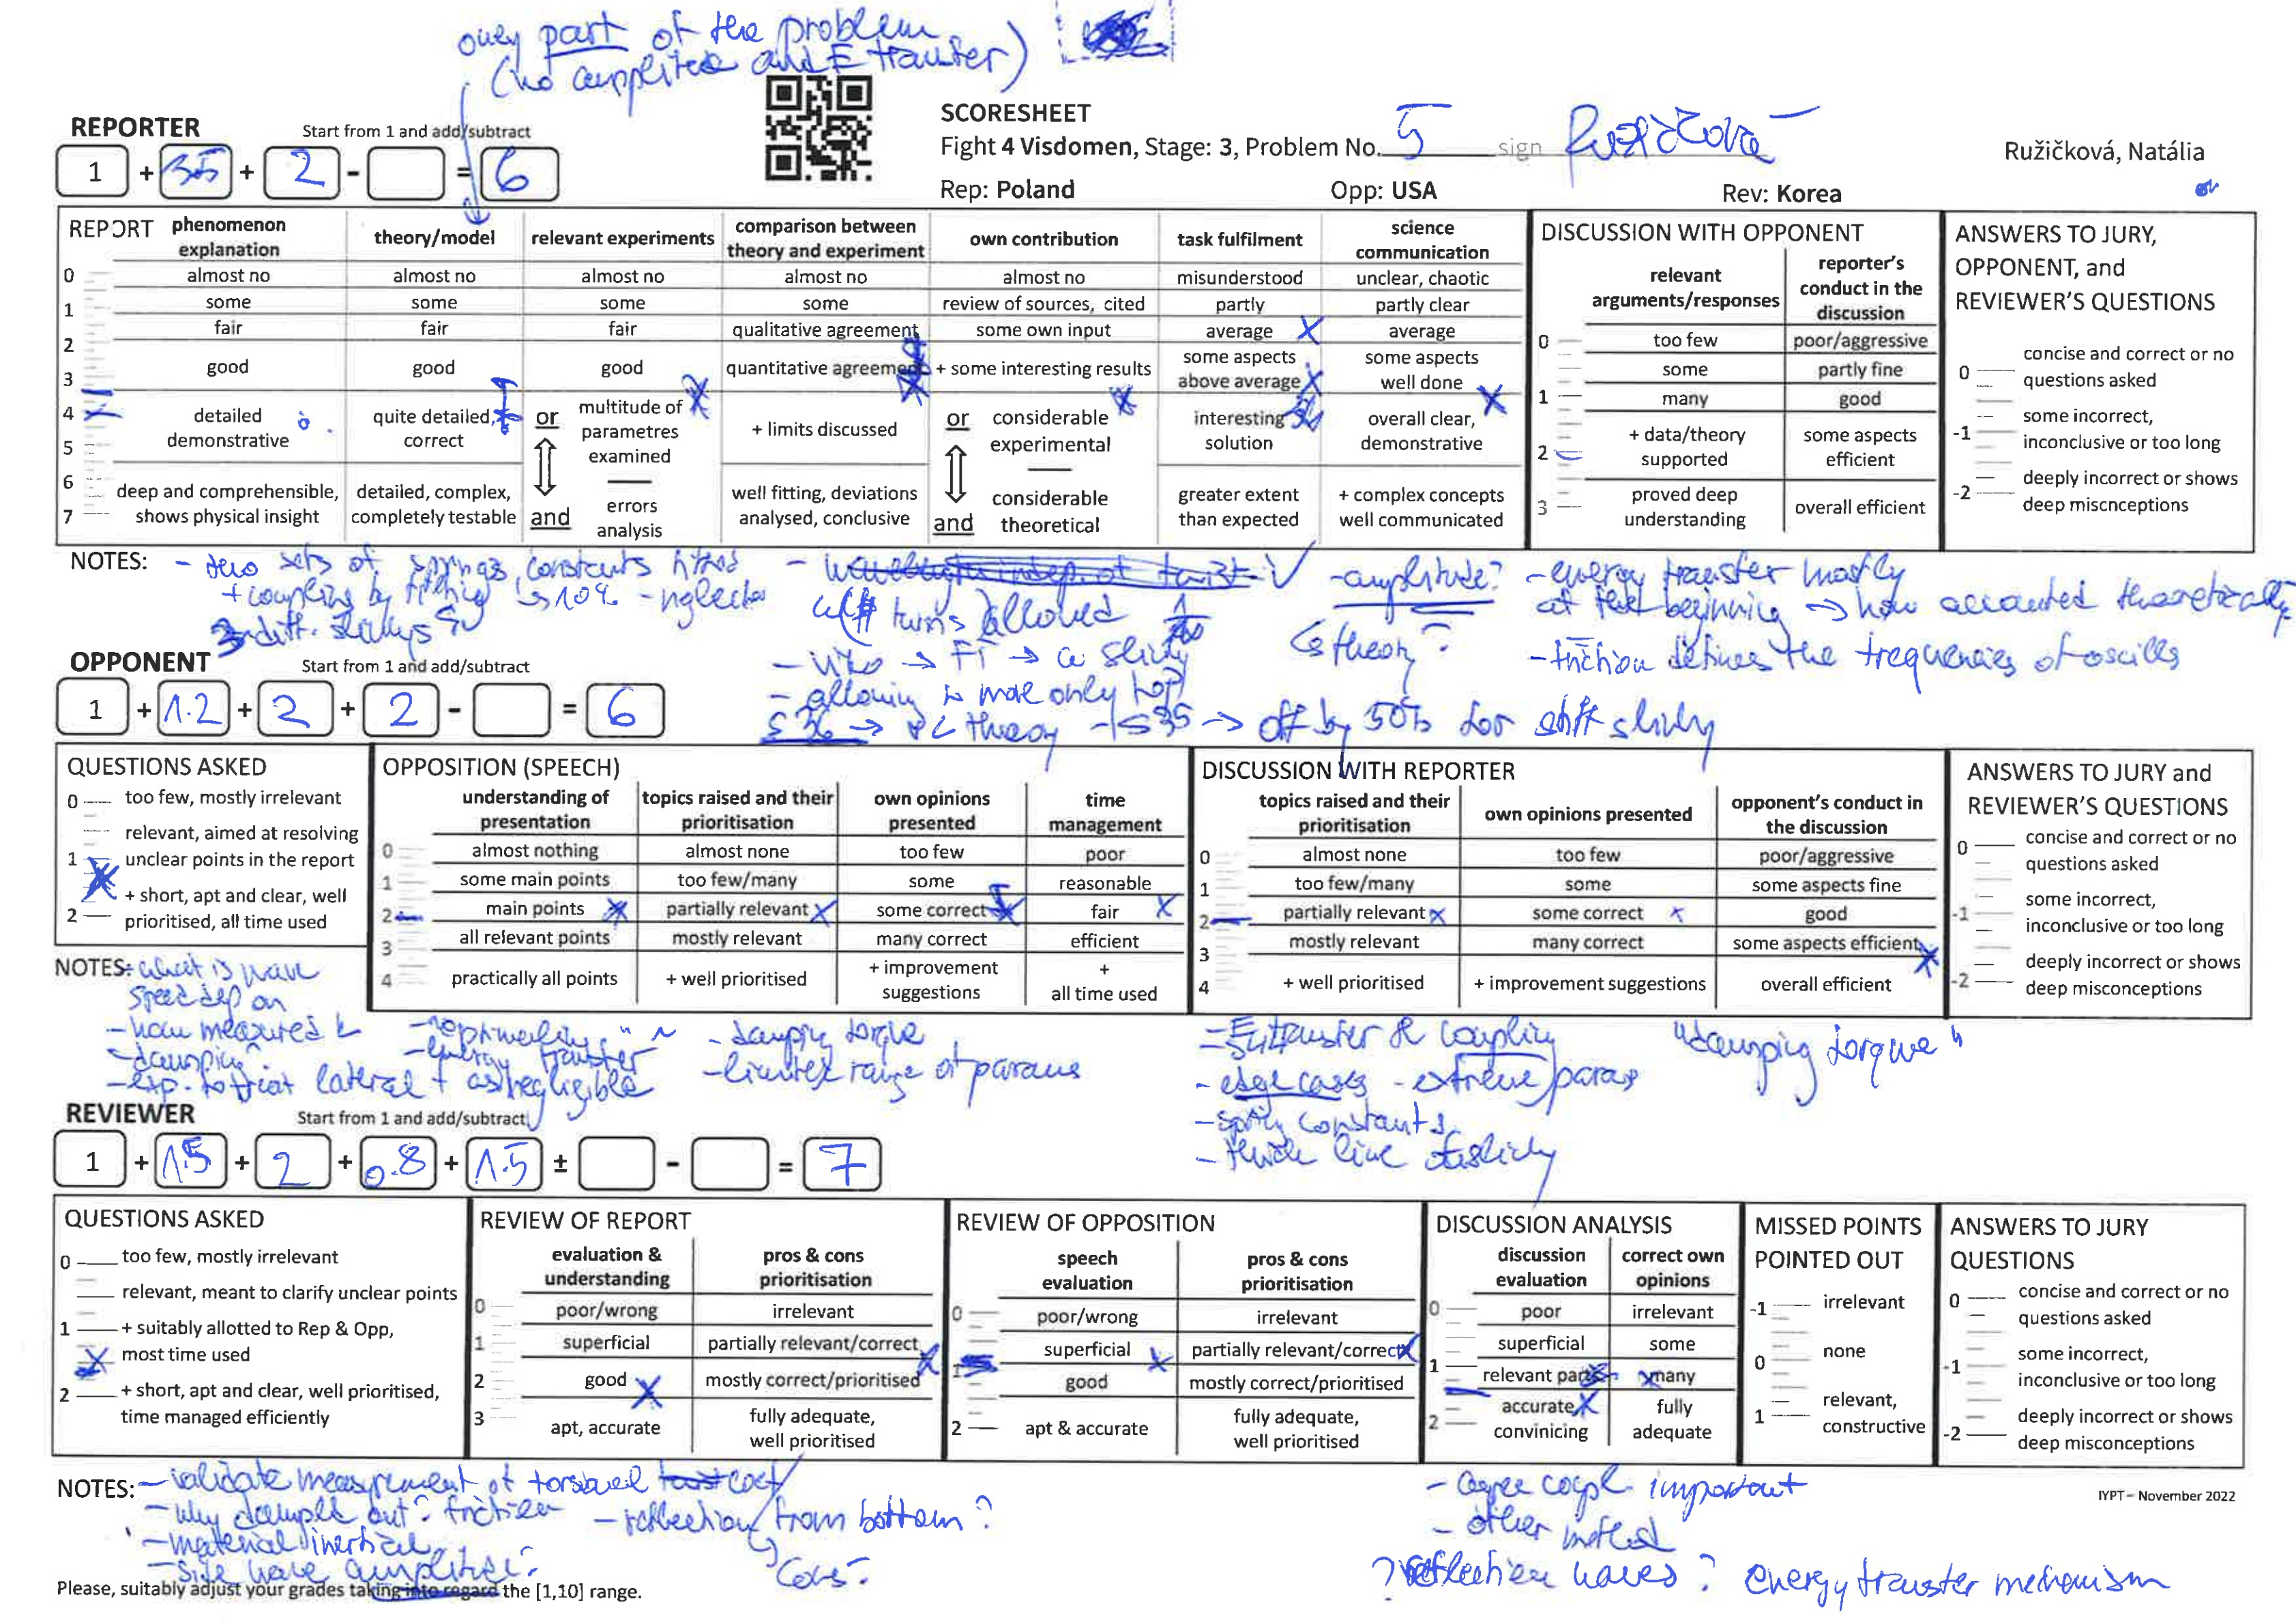 only part of the problem
(no amplitude and E transfer)
SCORESHEET
Fight 4 Visdomen, Stage: 3, Problem No. 5 sign Ružičková
Ružičková, Natália
Rep: Poland Opp: USA Rev: Korea
REPORTER Start from 1 and add/subtract
1 + 3.5 + 2 - = 6
REPORT
phenomenon explanation
theory/model
relevant experiments
comparison between theory and experiment
own contribution
task fulfilment
science communication
0 almost no almost no almost no almost no almost no misunderstood unclear, chaotic
1 some some some some review of sources, cited partly partly clear
fair fair fair qualitative agreement some own input average average
2
good good good quantitative agreement + some interesting results some aspects above average some aspects well done
3
4
5
detailed demonstrative
quite detailed, correct
or
multitude of parametres examined
+ limits discussed
or considerable experimental
interesting solution
overall clear, demonstrative
6
7
deep and comprehensible, shows physical insight
detailed, complex, completely testable
and
errors analysis
well fitting, deviations analysed, conclusive
and
considerable theoretical
greater extent than expected
+ complex concepts well communicated
DISCUSSION WITH OPPONENT
relevant arguments/responses
reporter's conduct in the discussion
0 too few poor/aggressive
some partly fine
1 many good
2 + data/theory supported some aspects efficient
3 proved deep understanding overall efficient
ANSWERS TO JURY, OPPONENT, and REVIEWER'S QUESTIONS
0 concise and correct or no questions asked
-1 some incorrect, inconclusive or too long
-2 deeply incorrect or shows deep miscnceptions
NOTES:
sets of springs, constants fitted
+ coupling by fitting 10% - neglected
# turns allowed
- amplitude?
theory?
- energy transfer mostly
at the beginning → how accounted theoretically
- friction defines the frequencies of oscills
- allowing to move only top!
S36 → theory - S35 → off by 50% for stiff slinky
OPPONENT Start from 1 and add/subtract
1 + 1.2 + 2 + 2 - = 6
QUESTIONS ASKED
0 too few, mostly irrelevant
1 relevant, aimed at resolving unclear points in the report
2 + short, apt and clear, well prioritised, all time used
OPPOSITION (SPEECH)
understanding of presentation
topics raised and their prioritisation
own opinions presented
time management
0 almost nothing almost none too few poor
1 some main points too few/many some reasonable
2 main points partially relevant some correct fair
3 all relevant points mostly relevant many correct efficient
4 practically all points + well prioritised + improvement suggestions + all time used
DISCUSSION WITH REPORTER
topics raised and their prioritisation
own opinions presented
opponent's conduct in the discussion
0 almost none too few poor/aggressive
1 too few/many some some aspects fine
2 partially relevant some correct good
3 mostly relevant many correct some aspects efficient
4 + well prioritised + improvement suggestions overall efficient
ANSWERS TO JURY and REVIEWER'S QUESTIONS
0 concise and correct or no questions asked
-1 some incorrect, inconclusive or too long
-2 deeply incorrect or shows deep misconceptions
NOTES: what is wave
speed dep on
- how measured k
- damping
- exp. to treat lateral + as negligible
- energy transfer
- damping torque
- limited range of params
- E transfer & coupling
"damping torque"
- edge cases - extreme params
- spring constants
REVIEWER Start from 1 and add/subtract
1 + 1.5 + 2 + 0.8 + 1.5 ± - = 7
QUESTIONS ASKED
0 too few, mostly irrelevant
relevant, meant to clarify unclear points
1 + suitably allotted to Rep & Opp, most time used
2 + short, apt and clear, well prioritised, time managed efficiently
REVIEW OF REPORT
evaluation & understanding
pros & cons prioritisation
0 poor/wrong irrelevant
1 superficial partially relevant/correct
2 good mostly correct/prioritised
3 apt, accurate fully adequate, well prioritised
REVIEW OF OPPOSITION
speech evaluation
pros & cons prioritisation
0 poor/wrong irrelevant
superficial partially relevant/correct
1 good mostly correct/prioritised
2 apt & accurate fully adequate, well prioritised
DISCUSSION ANALYSIS
discussion evaluation
correct own opinions
0 poor irrelevant
superficial some
1 relevant parts many
2 accurate, convinicing fully adequate
MISSED POINTS POINTED OUT
-1 irrelevant
0 none
1 relevant, constructive
ANSWERS TO JURY QUESTIONS
0 concise and correct or no questions asked
-1 some incorrect, inconclusive or too long
-2 deeply incorrect or shows deep misconceptions
NOTES: - validate measurement of torsional coef
- why damped out? friction
- reflection from bottom?
- material inertial
- side wave amplitude?
- agree coupl. important
- other method
? reflection waves? energy transfer mechanism
IYPT – November 2022
Please, suitably adjust your grades taking into regard the [1,10] range.